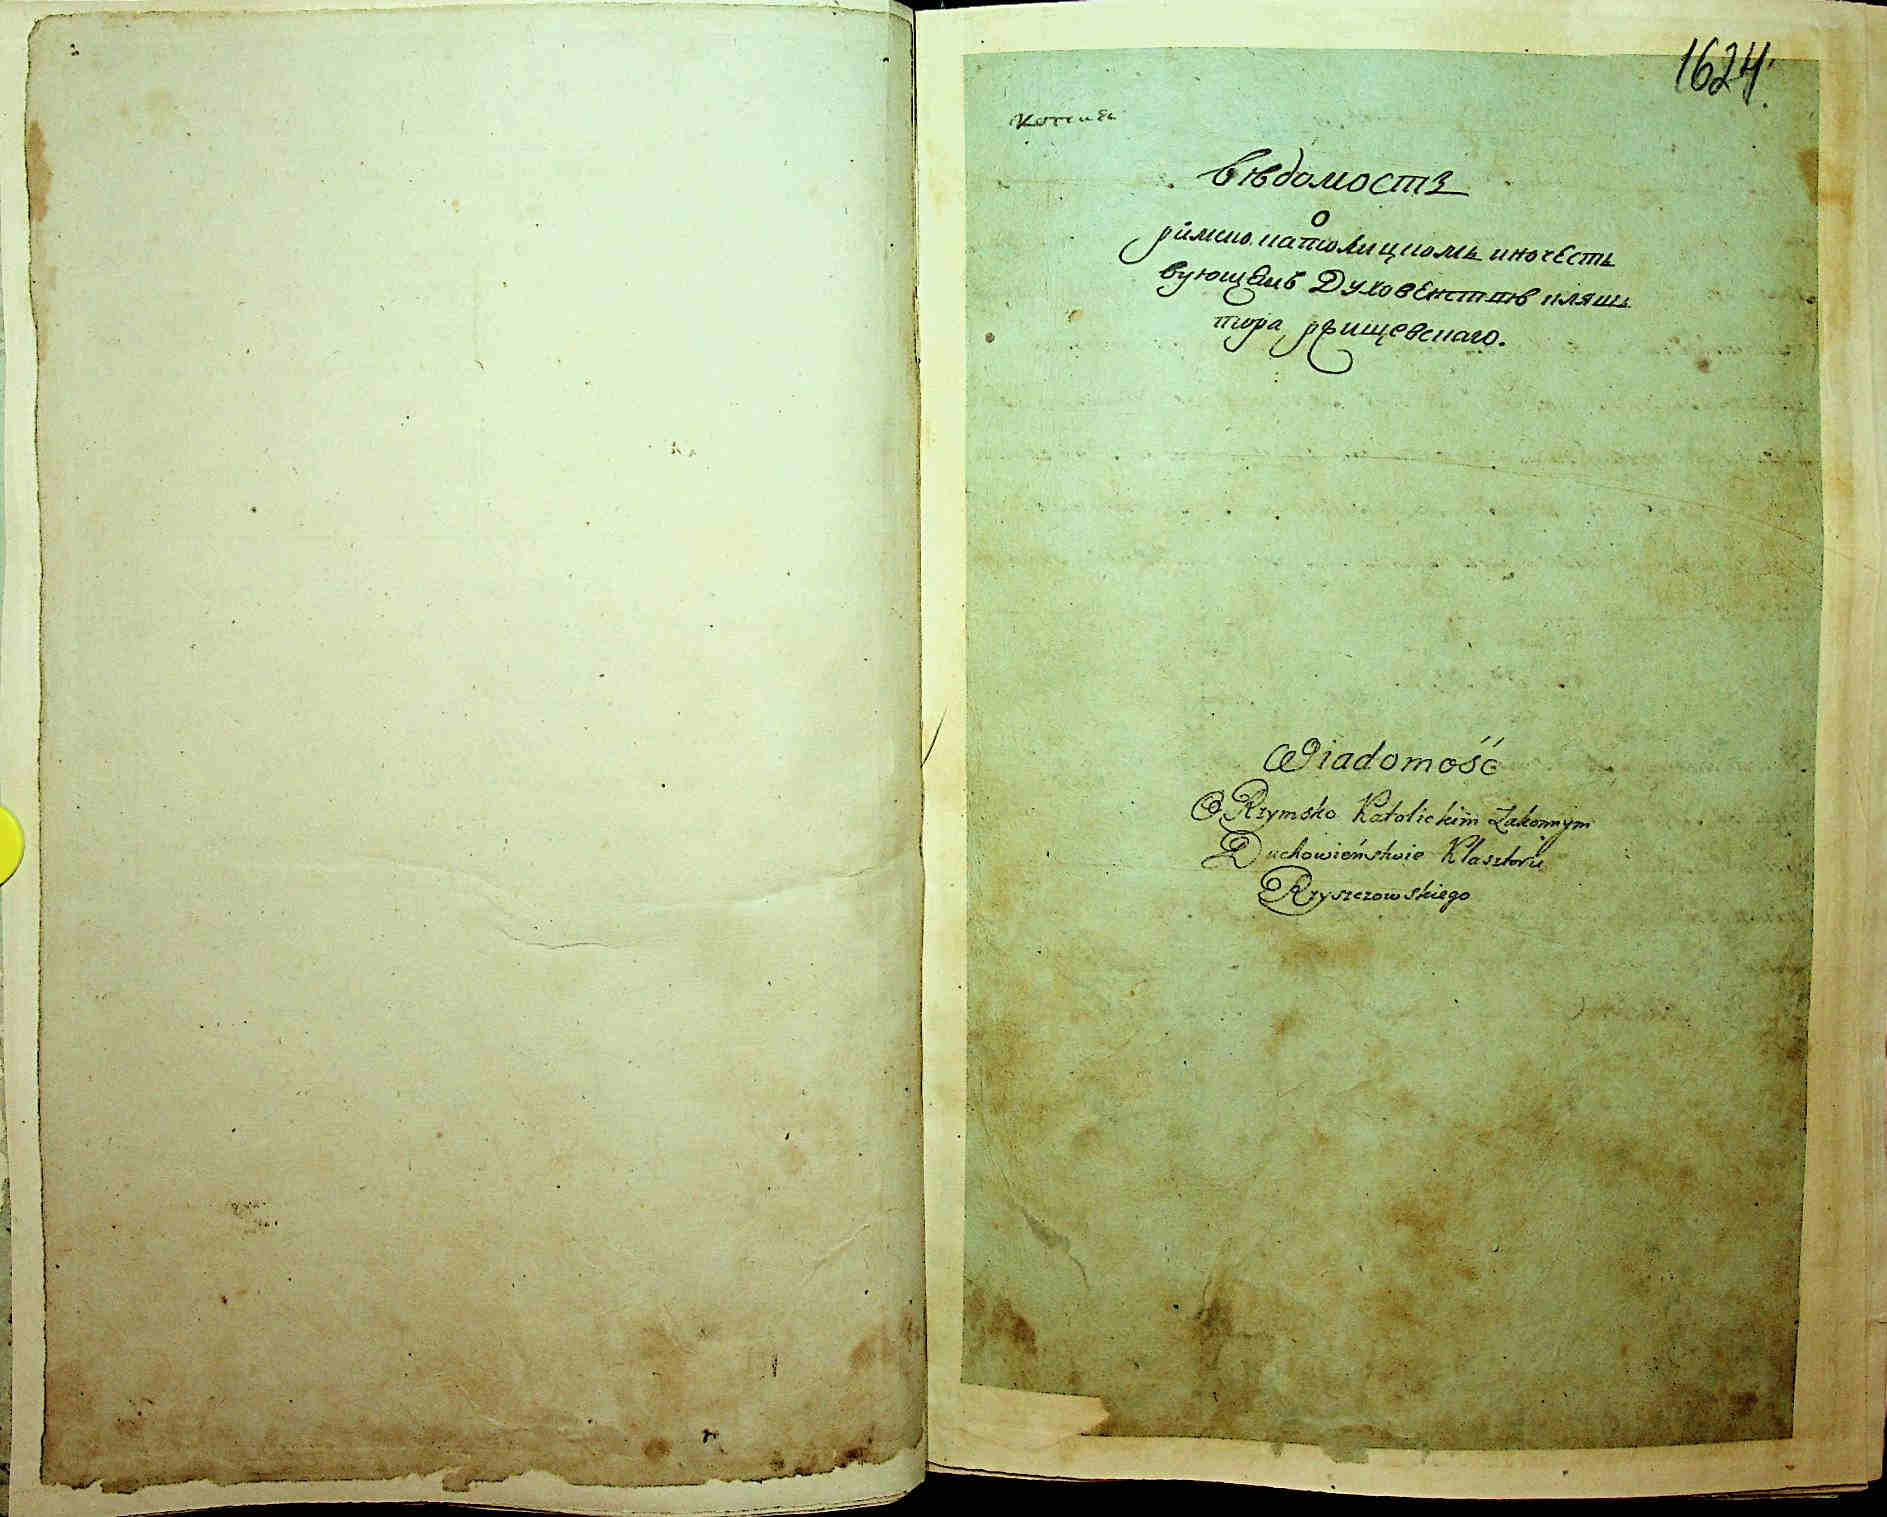 1624.
Копия
Вѣдомость
о
римско католицкомъ иночест
вующемъ Духовенствѣ кляш
тора ржищевскаго.
Wiadomość
O Rzymsko Katolickim Zakonnym
Duchowieństwie Klasztoru
Rzyszczowskiego